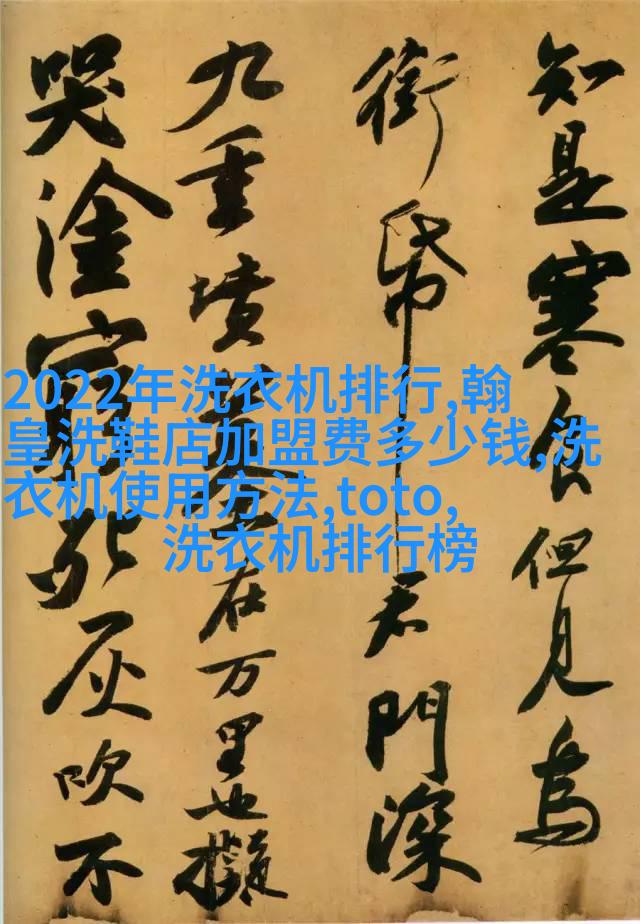 知是寒食但見烏
銜帋君門深
九重墳墓在万里也擬
哭塗窮死灰吹不
2022年洗衣机排行,翰
皇洗鞋店加盟费多少钱,洗
衣机使用方法,toto,
洗衣机排行榜